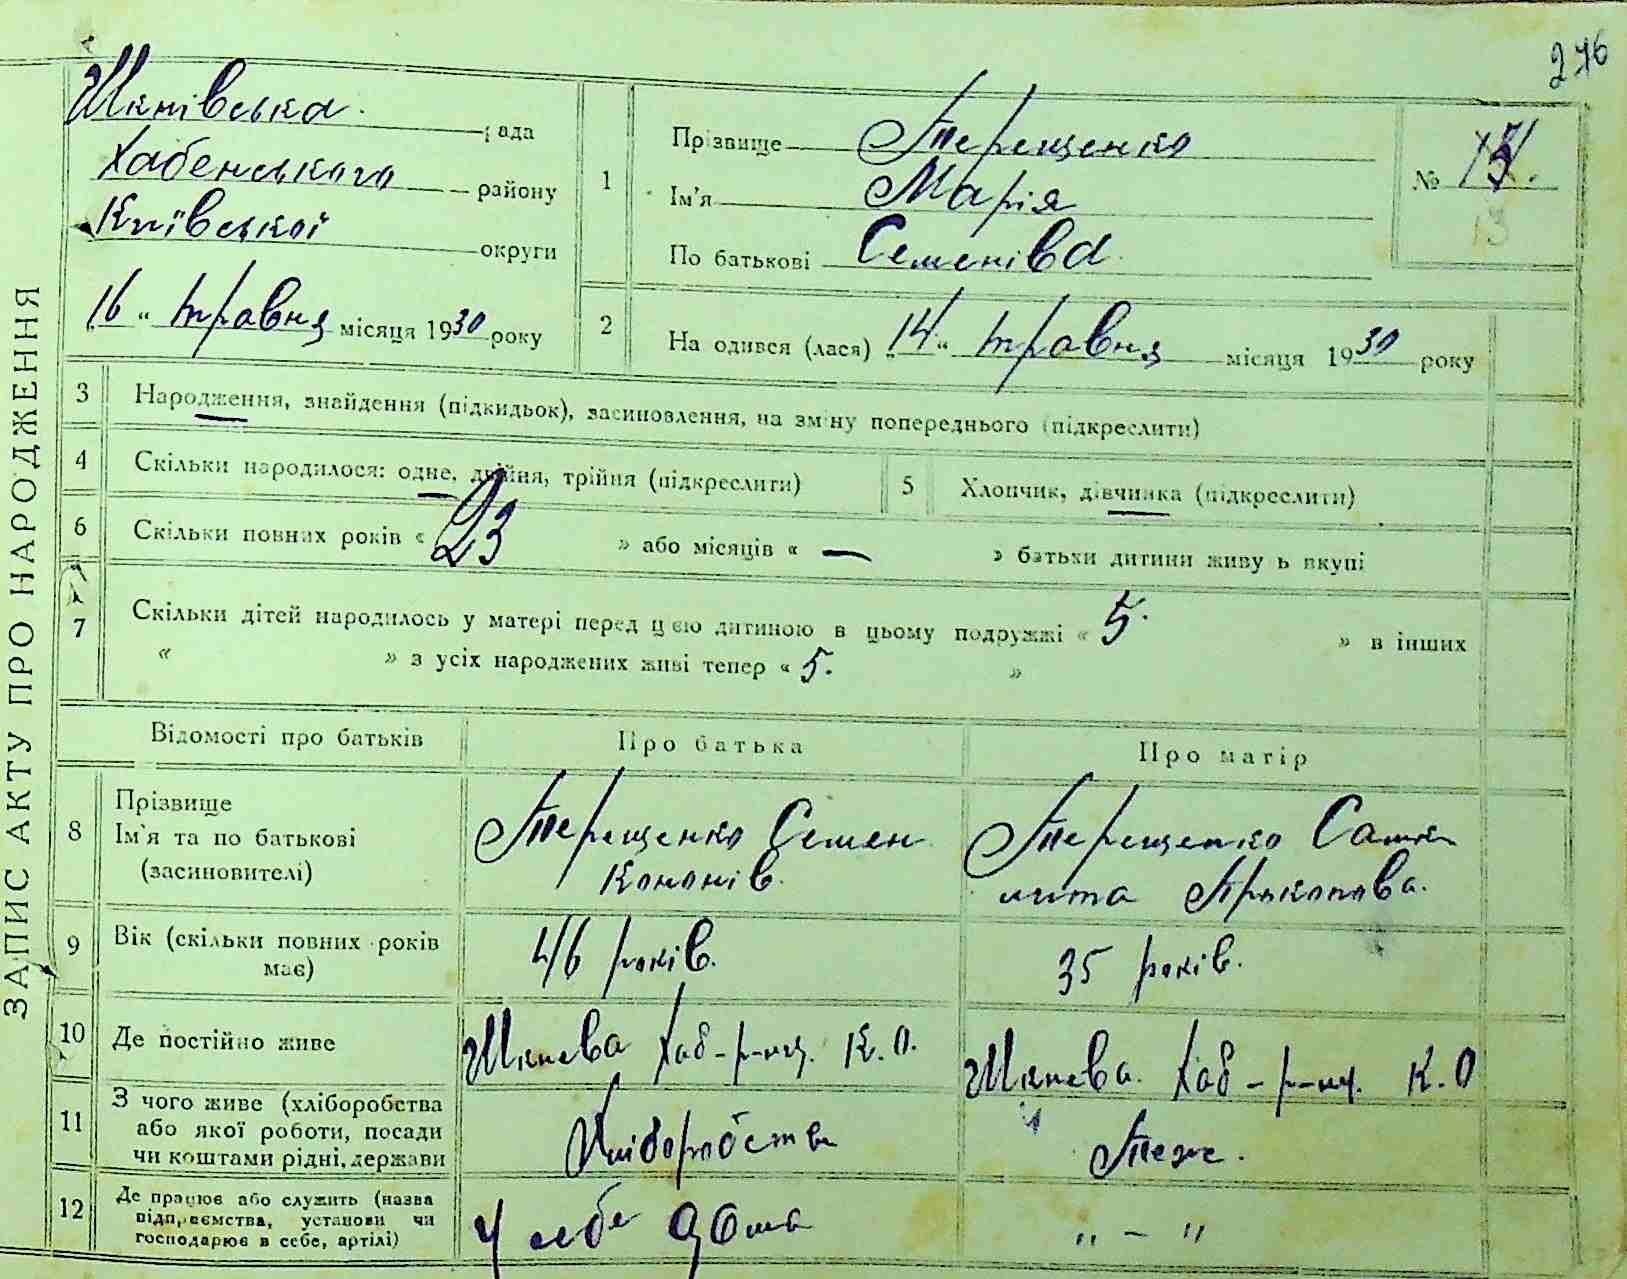 276
ЗАПИС АКТУ ПРО НАРОДЖЕННЯ
Шкнівська рада
Хабенського району
Київської округи
„16“ травня місяця 1930 року
1
Прізвище Терещенко
Ім'я Марія
По батькові Семеніва
№
13
2
Народився (лася) „14“ травня місяця 1930 року
3
Народження, знайдення (підкидьок), засиновлення, на зміну попереднього (підкреслити)
4
Скільки народилося: одне, двійня, трійня (підкреслити)
5
Хлопчик, дівчинка (підкреслити)
6
Скільки повних років « 23 » або місяців « — » батьки дитини живуть вкупі
7
Скільки дітей народилось у матері перед цією дитиною в цьому подружжі « 5. » в інших
« » з усіх народжених живі тепер « 5. »
Відомості про батьків
Про батька
Про матір
8
Прізвище
Ім'я та по батькові
(засиновителі)
Терещенко Семен
Кононів.
Терещенко Салон-
Прокопова.
9
Вік (скільки повних років
має)
46 років.
35 років.
10
Де постійно живе
Шкнева Хаб-р-ну. К.О.
Шкнева. Хаб-р-ну. К.О
11
З чого живе (хліборобства
або якої роботи, посади
чи коштами рідні, держави
Хліборобства
Теже.
12
Де працює або служить (назва
підприємства, установи чи
господарює в себе, артілі)
У себе дома
„ – “